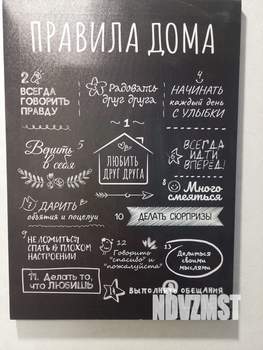 ПРАВИЛА ДОМА
2.
ВСЕГДА
ГОВОРИТЬ
ПРАВДУ
Радовать
друг друга
НАЧИНАТЬ
каждый день
С УЛЫБКИ
1
ЛЮБИТЬ
ДРУГ ДРУГА
Верить 5
в себя
ВСЕГДА
ИДТИ
ВПЕРЕД!
ДАРИТЬ
объятия и поцелуи
8 Много
смеяться
10 ДЕЛАТЬ СЮРПРИЗЫ
9 НЕ ЛОЖИТЬСЯ
СПАТЬ В ПЛОХОМ
НАСТРОЕНИИ
12
Говорить
"спасибо" и
"пожалуйста"
13
Делиться
своими
мыслями
11. Делать то,
что ЛЮБИШЬ
ВЫПОЛНЯТЬ ОБЕЩАНИЯ
NDVZMST